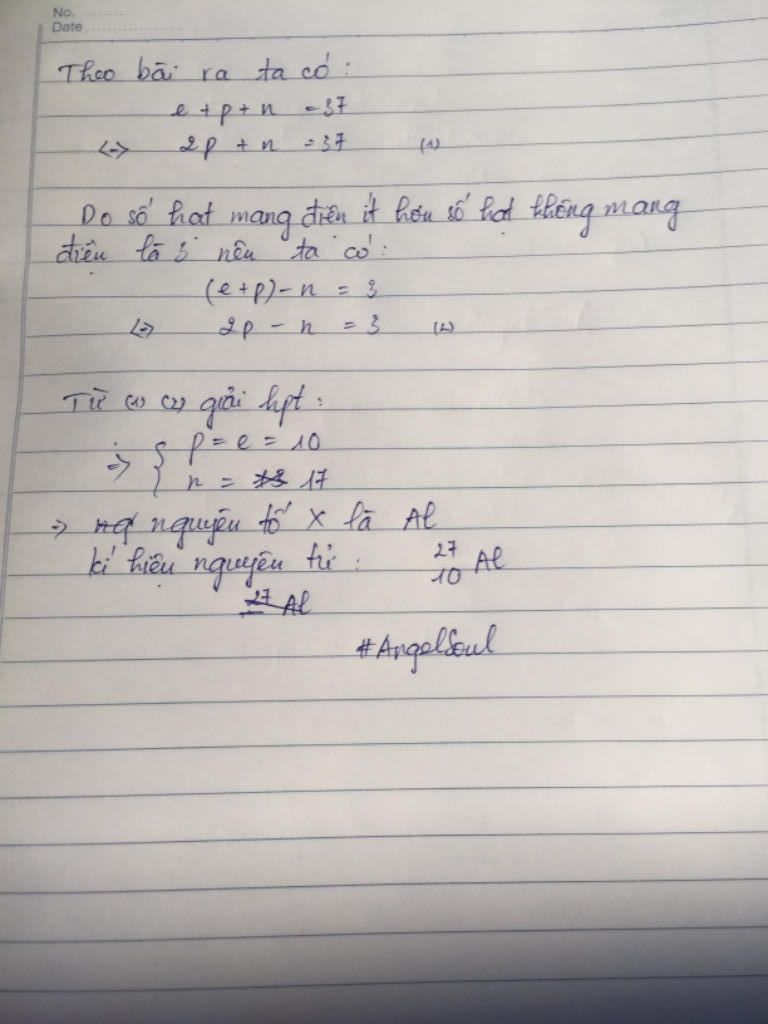 No. ........
Date ..................
Theo bài ra ta có:
e + p + n = 37
<=> 2p + n = 37 (1)
Do số hạt mang điện ít hơn số hạt không mang
điện là 3 nên ta có:
(e+p) - n = 3
<=> 2p - n = 3 (2)
Từ (1) (2) giải hpt:
=> { p = e = 10
n = 17
=> nguyên tố X là Al
kí hiệu nguyên tử: ²⁷₁₀Al
27 Al
#AngelSoul